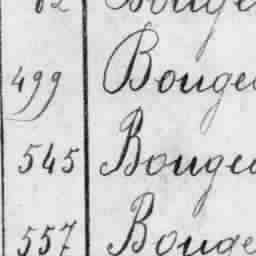 499 Bouge
545 Bouge
557 Bouge